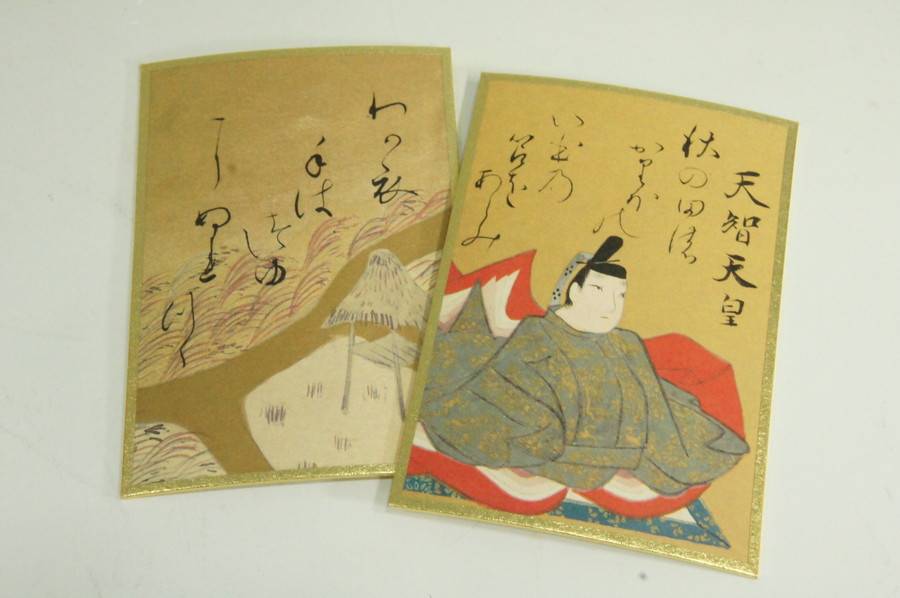 天智天皇
秋の田の
かりほの
いほ乃
苫を
あらみ
わか衣
手は
つゆ
にぬれ
つゝ